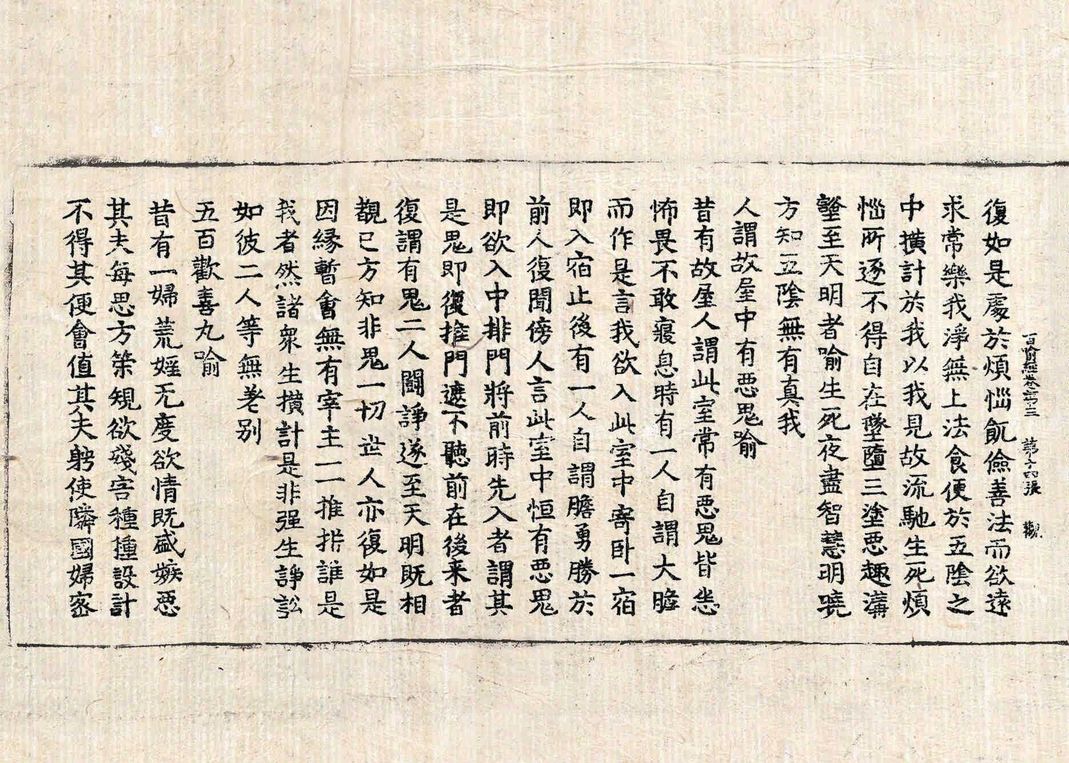 百喻經卷第三 第十四張
復如是處於煩惱飢儉善法而欲遠
求常樂我淨無上法食便於五陰之
中撗計於我以我見故流馳生死煩
惱所逐不得自在墜墮三塗惡趣溝
壑至天明者喻生死夜盡智慧明曉
方知五陰無有真我
人謂故屋中有惡鬼喻
昔有故屋人謂此室常有惡鬼皆悉
怖畏不敢寢息時有一人自謂大膽
而作是言我欲入此室中寄卧一宿
即入宿止後有一人自謂膽勇勝於
前人復聞傍人言此室中恒有惡鬼
即欲入中排門將前時先入者謂其
是鬼即復推門遮不聽前在後来者
復謂有鬼二人鬪諍遂至天明既相
覩已方知非鬼一切世人亦復如是
因緣暫會無有宰主一一推析誰是
我者然諸衆生撗計是非强生諍訟
如彼二人等無差别
五百歡喜丸喻
昔有一婦荒婬无度欲情既盛嫉惡
其夫每思方策規欲殘害種種設計
不得其便會值其夫躬使隣國婦密